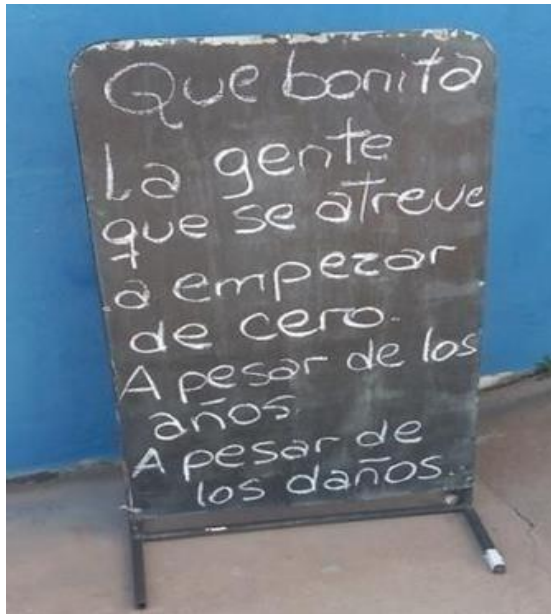 Que bonita
La gente
que se atreve
a empezar
de cero.
A pesar de los
años.
A pesar de
los daños..